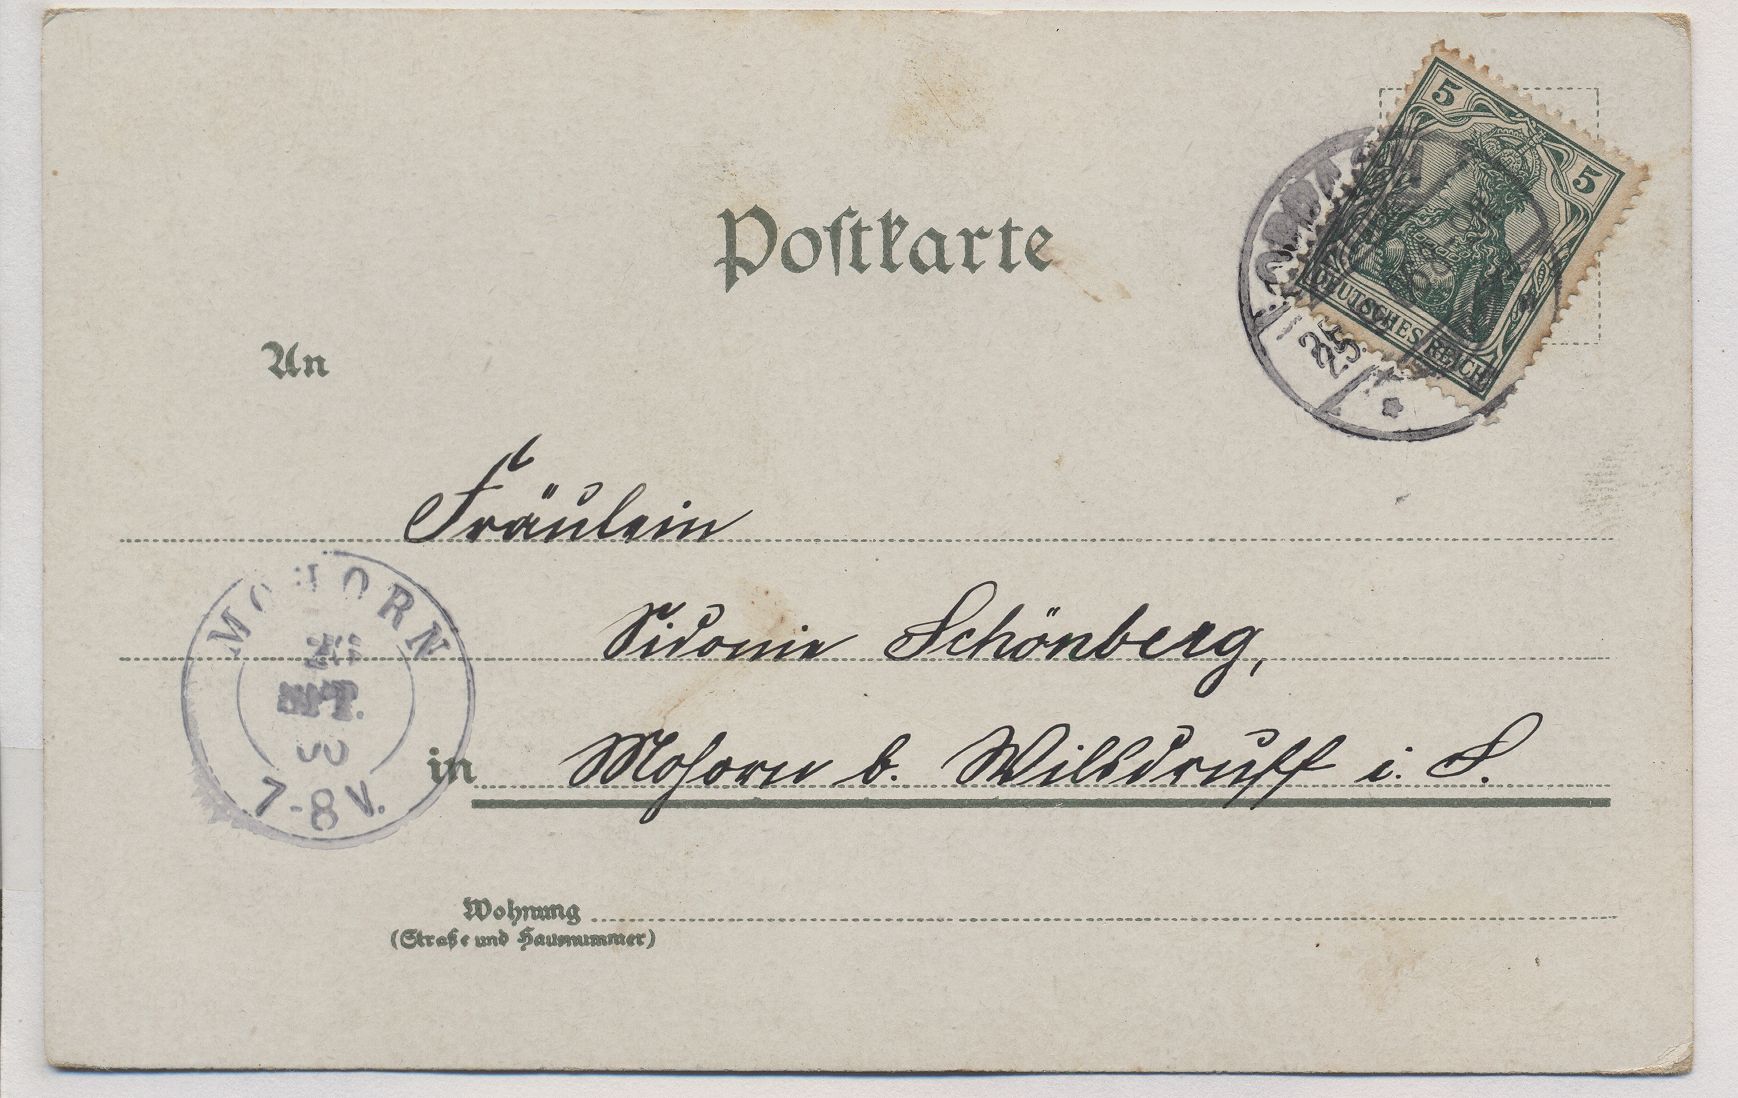 5
5
DEUTSCHES REICH
25.
Postkarte
An
Fräulein
Sidonie Schönberg,
MOHORN
26
SPT.
00
7-8 V.
in Mohorn b. Wilsdruff i. S.
Wohnung
(Straße und Hausnummer)